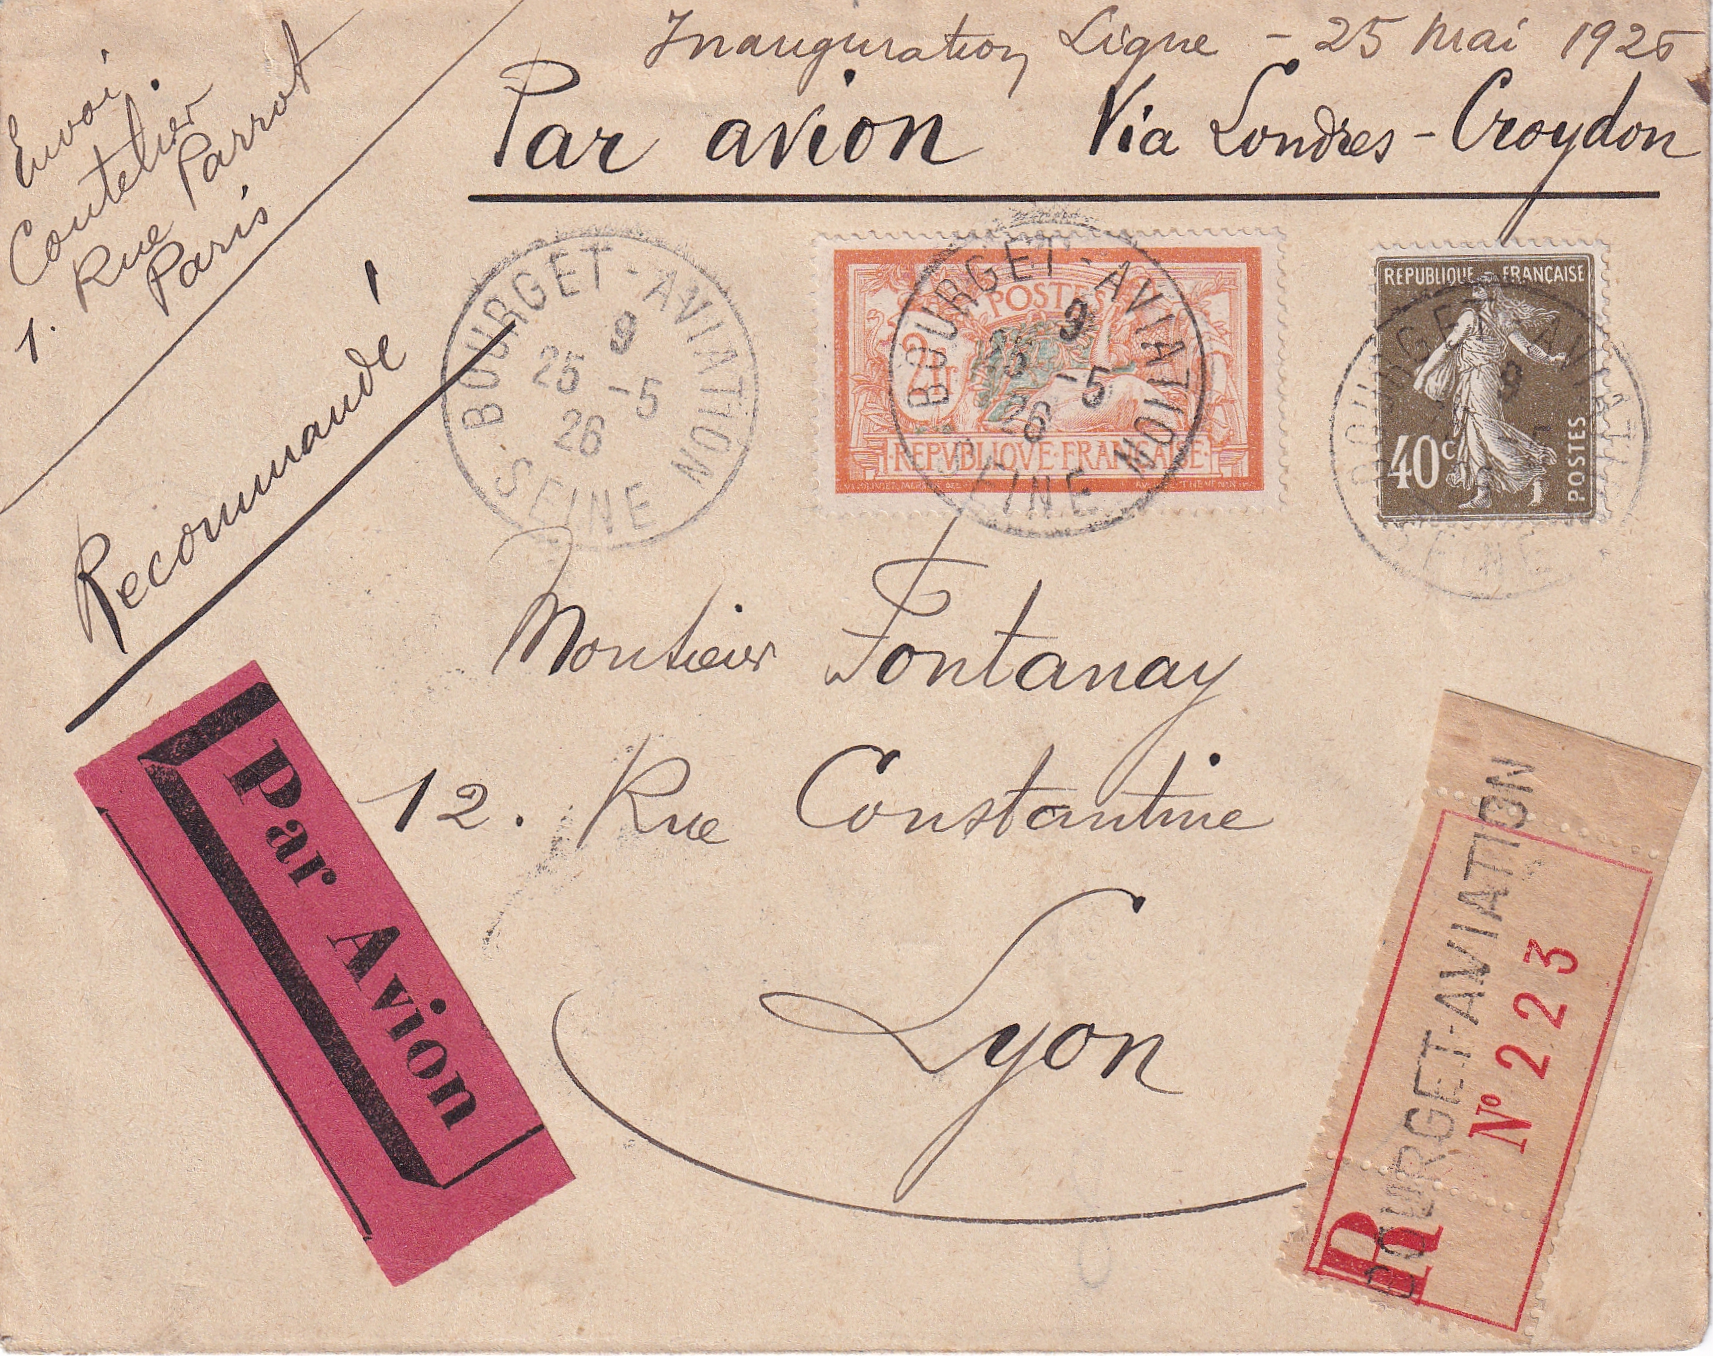 Inauguration Ligne - 25 Mai 1926
Par avion Via Londres-Croydon
Envoi
Coutelier
1. Rue Parrot
Paris
Recommandé
BOURGET-AVIATION
9
25 -5
26
SEINE
POSTES
2F
REPVBLIQVE FRANÇAISE
BOURGET-AVIATION
9
25 -5
26
SEINE
REPUBLIQUE FRANÇAISE
40c
POSTES
BOURGET-AVIATION
9
SEINE
Monsieur Fontanay
12. Rue Constantine
Lyon
Par Avion
R
BOURGET-AVIATION
Nº 223